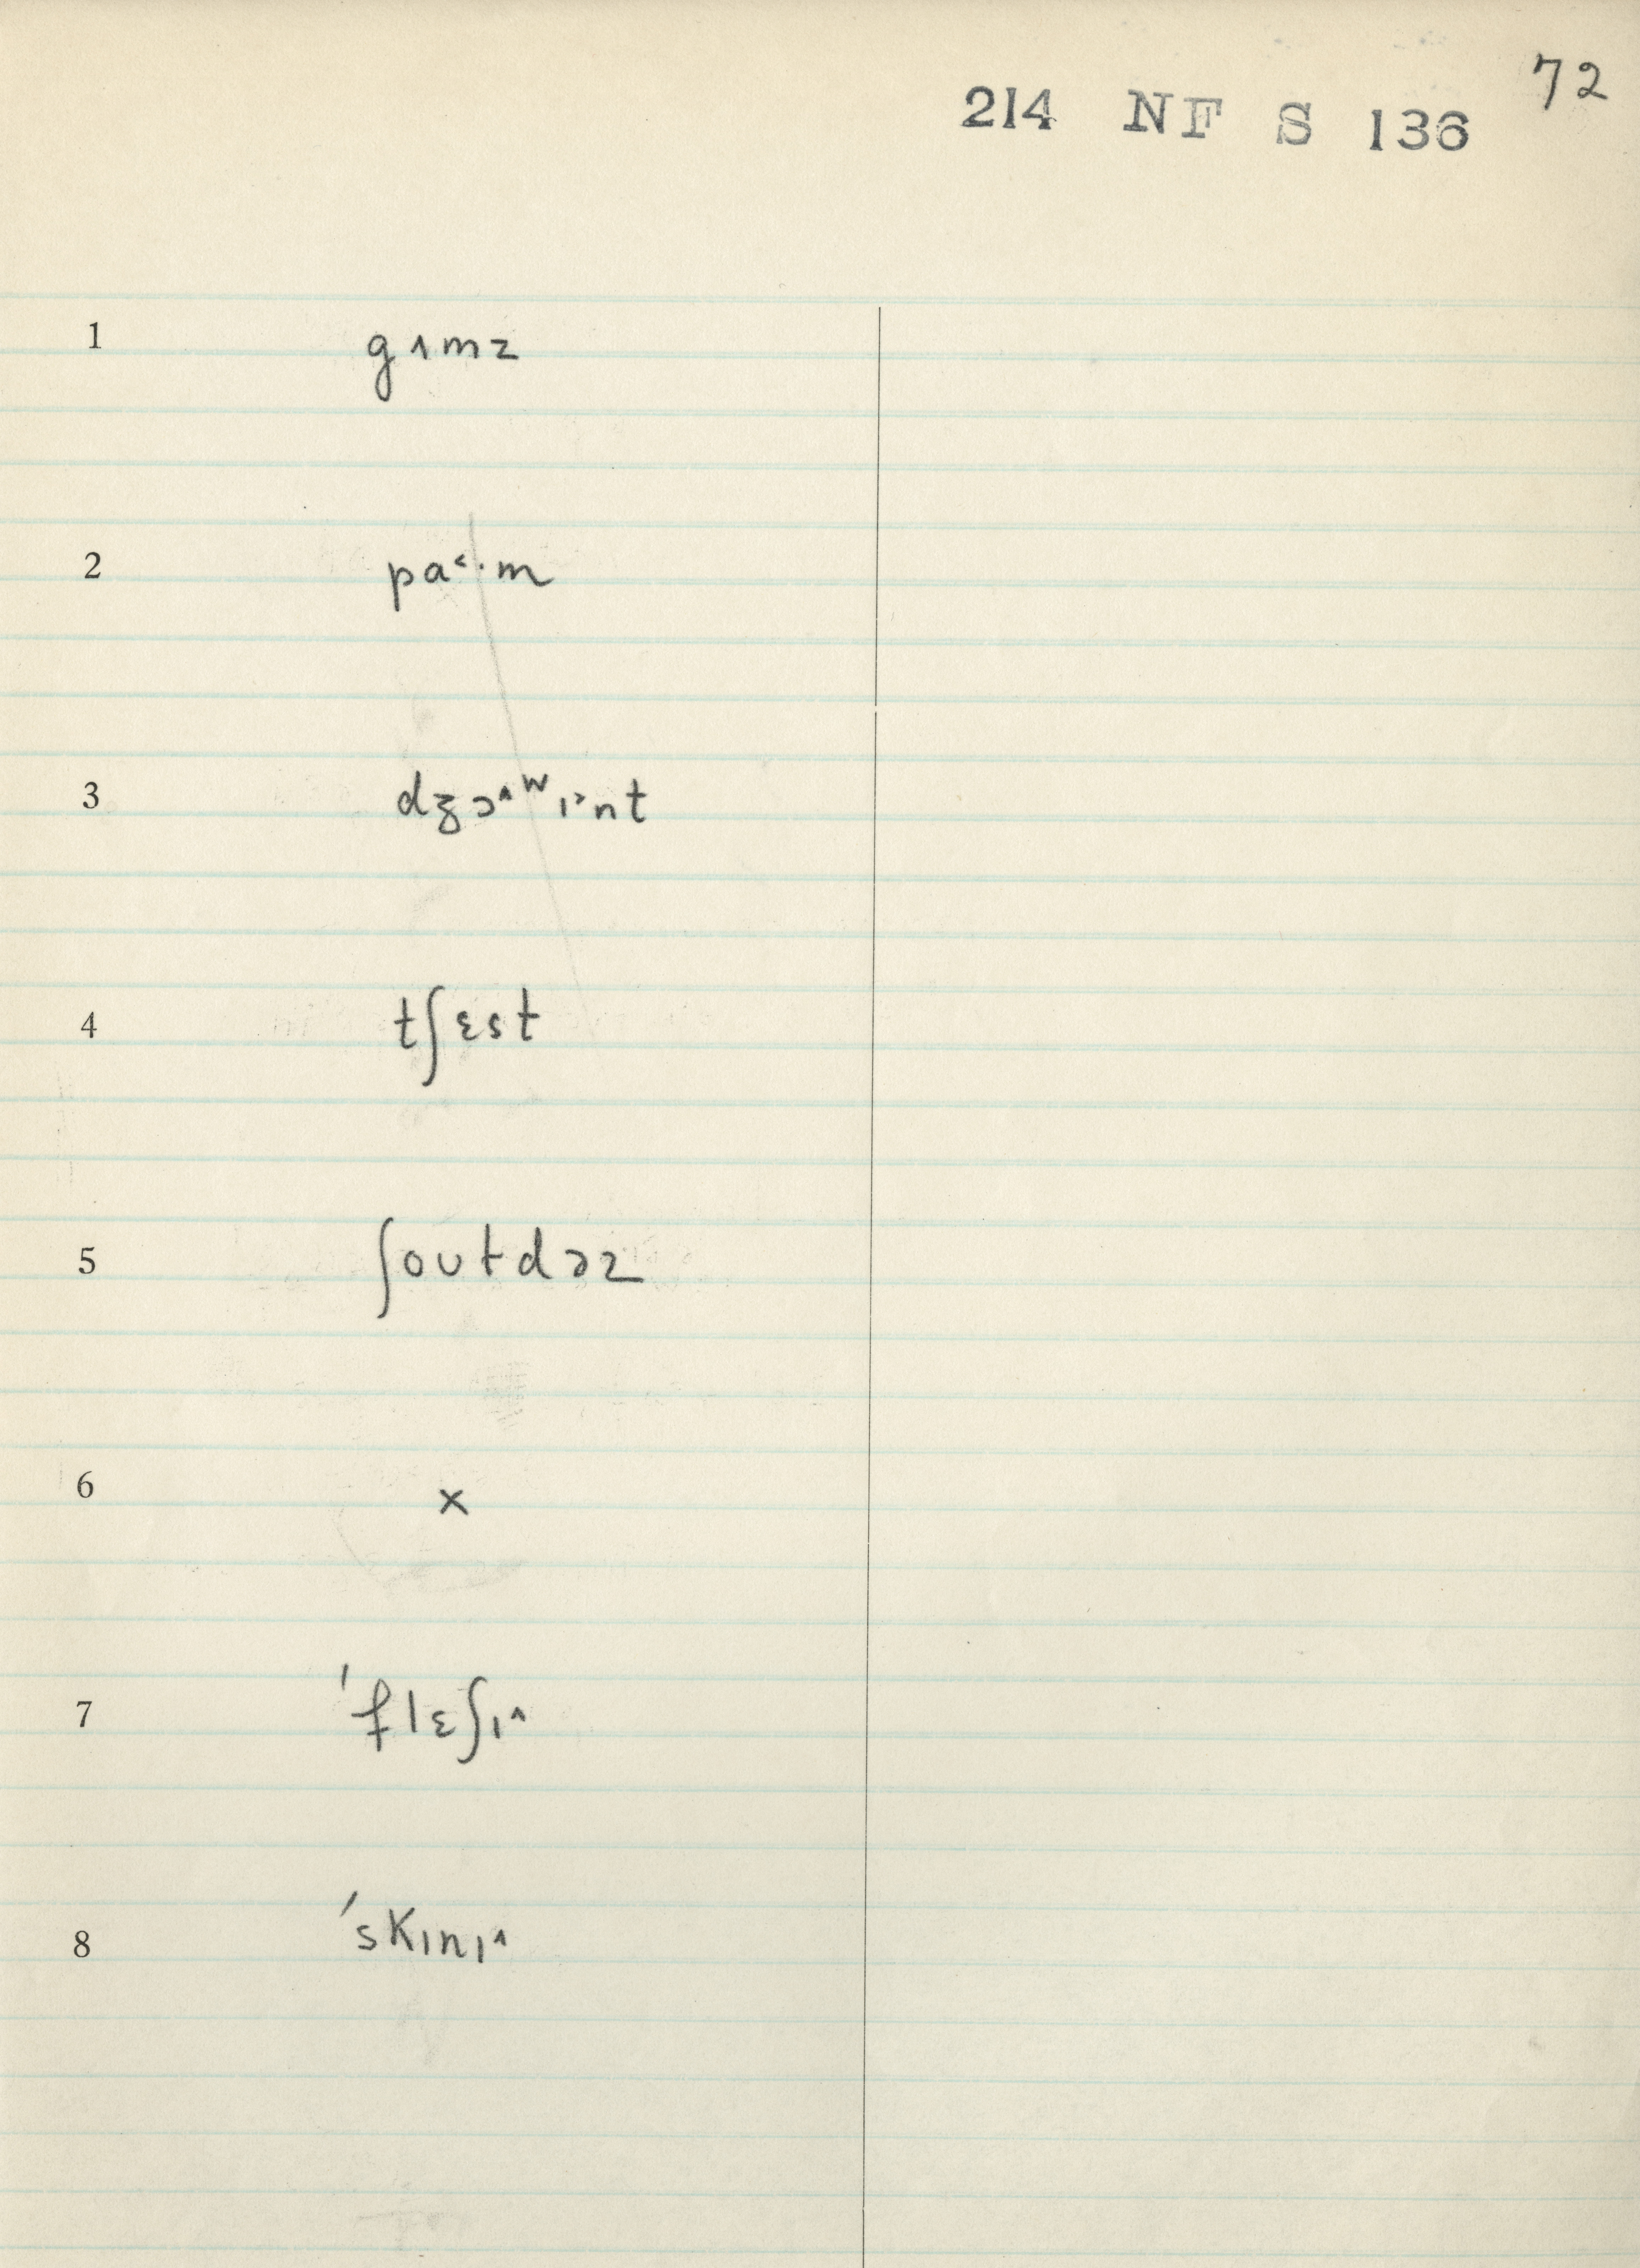 72
214 NF S 136
1 gɪmz
2 pa˂·m
3 dʒɔ˄ʷɪ˃nt
4 tʃɛst
5 ʃoʊtdəz
6 x
7 ˈflɛʃɪ˄
8 ˈskɪnɪ˄